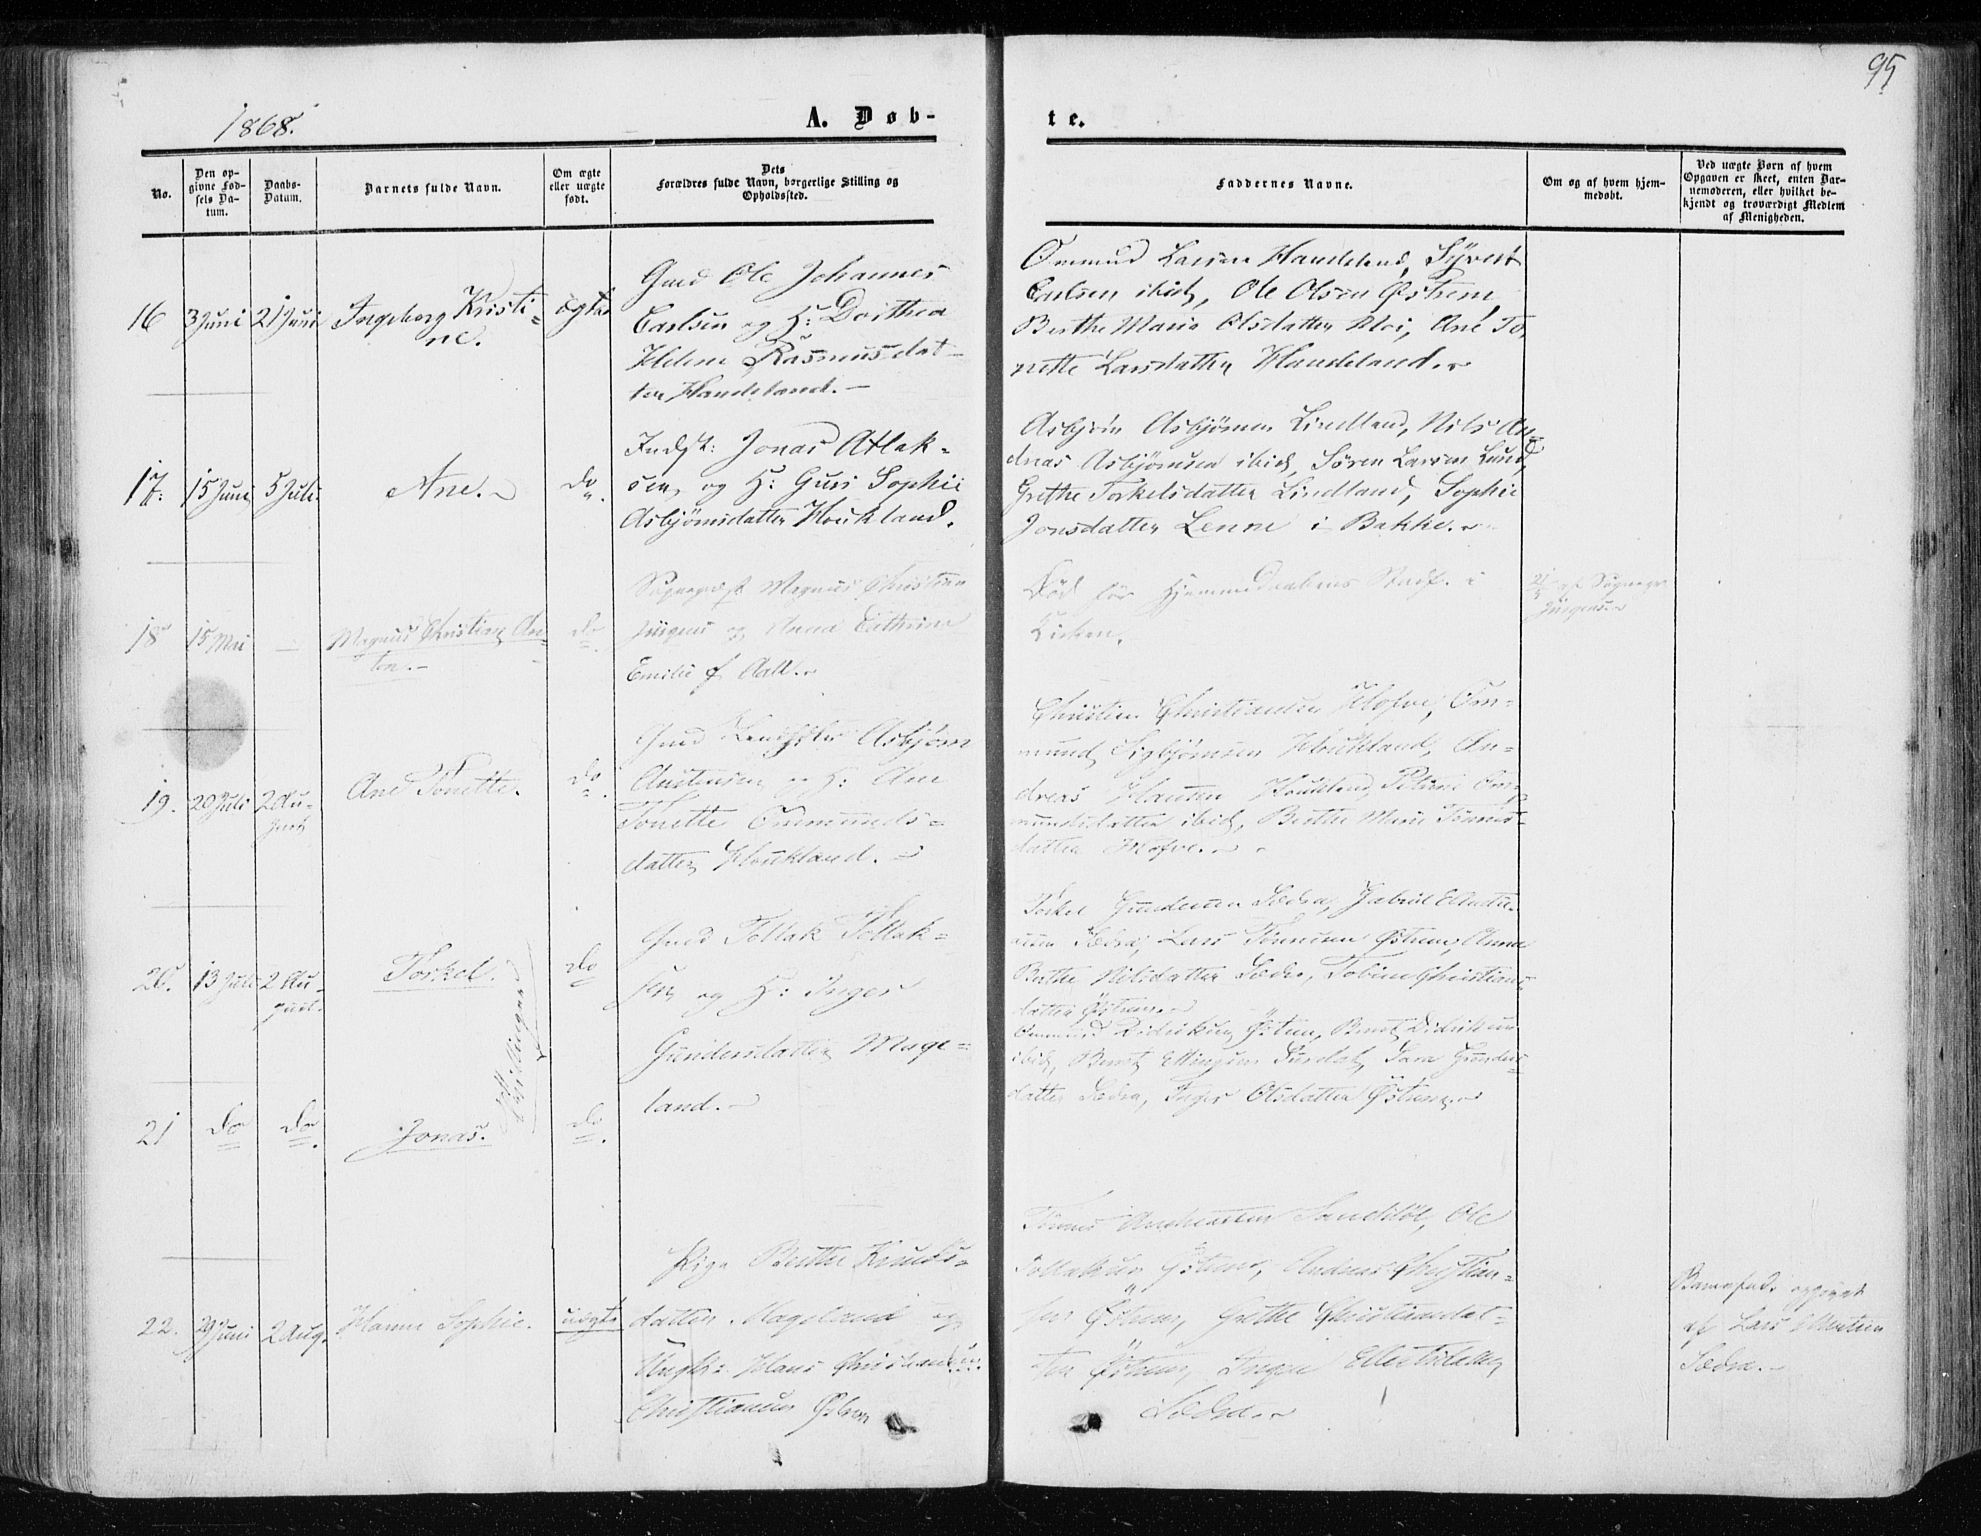 95
1868.
A. Døb-
te.
No.
Den op-
givne Fød-
sels Da-
tum.
Daabs-
Datum.
Barnets fulde Navn.
Om ægte
eller uægte
født.
Dets
Forældres fulde Navn, borgerlige Stilling og
Opholdssted.
Faddernes Navne.
Om og af hvem hjem-
medøbt.
Ved uægte Børn af hvem
Opgaven er skeet, enten Bar-
nemoderen, eller hvilket be-
kjendt og troværdigt Medlem
af Menigheden.
16 3 Juni 21 Juni Ingeborg Kristi-
ne.
ægte
Gmd Ole Johannes
Carlsen og H: Dorthea
Helene Rasmusdat-
ter Haudeland.-
Ommund Larsen Haudeland, Syvert
Carlsen ibid, Ole Olsen Østrem,
Berthe Marie Olsdatter Moi, Ane To-
nette Larsdatter Haudeland.
17. 15 Juni 5 Juli Ane. do
Indst: Jonas Atlak-
sen og H: Guri Sophie
Asbjørnsdatter Houkland.
Asbjørn Asbjørnsen Lindland, Nils An-
dreas Asbjørnsen ibid, Søren Larsen Lund,
Grethe Torkelsdatter Lindland, Sophie
Jonsdatter Lenne i Bakke.
18 15 Mai - Magnus Christian An-
ton.- do
Sogneprest Magnus Christian
Jürgens og Anna Cathrine
Emilie f. Aall.
Død før Hjemmedaabens Stadf. i
Kirken.
af Sognepr
Jürgensen
19. 20 Juli 2 Au-
gust
Ane Tonette. do
Gmd Asbjørn
Austensen og H: Ane
Tonette Ommunds-
datter Houkland.
Christen Christiansen Hofve, Om-
mund Sigbjørnsen Houkland, An-
dreas Hansen Houkland, Om-
mundsdatter ibid, Berthe Marie Tønnes-
datter Hofve.
20. 13 Juli 2 Au-
gust.
Torkel. do
Tvillinger
Gmd Tollak Tollak-
sen og H: Inger
Gundersdatter Mage-
land.
Torkel Gundersen Sædra, Gabriel
Sædra, Lars Tønnesen Østrem, Anna
Berthe Nilsdatter Sædra, Tobine Christians-
datter Østrem.
21 do do Jonas. do
Ommund Didriksen Østrem, Didriksen
ibid, Bernt Sara Gunders-
datter Sædra, Inger Olsdatter Østrem.
22. 29 Juni 2 Aug. Hanne Sophie. uægte
Pige Berthe Knuds-
datter Mageland og
Ungk: Hans Christian
Christiansen Østrem
Tønnes Andreassen Ole
Tollaksen Østrem, Andreas Christian-
sen Østrem, Grethe Christiansdat-
ter Østrem, Inger
Sædra.
Barnefad. opgivet
af Lars
Sædra.